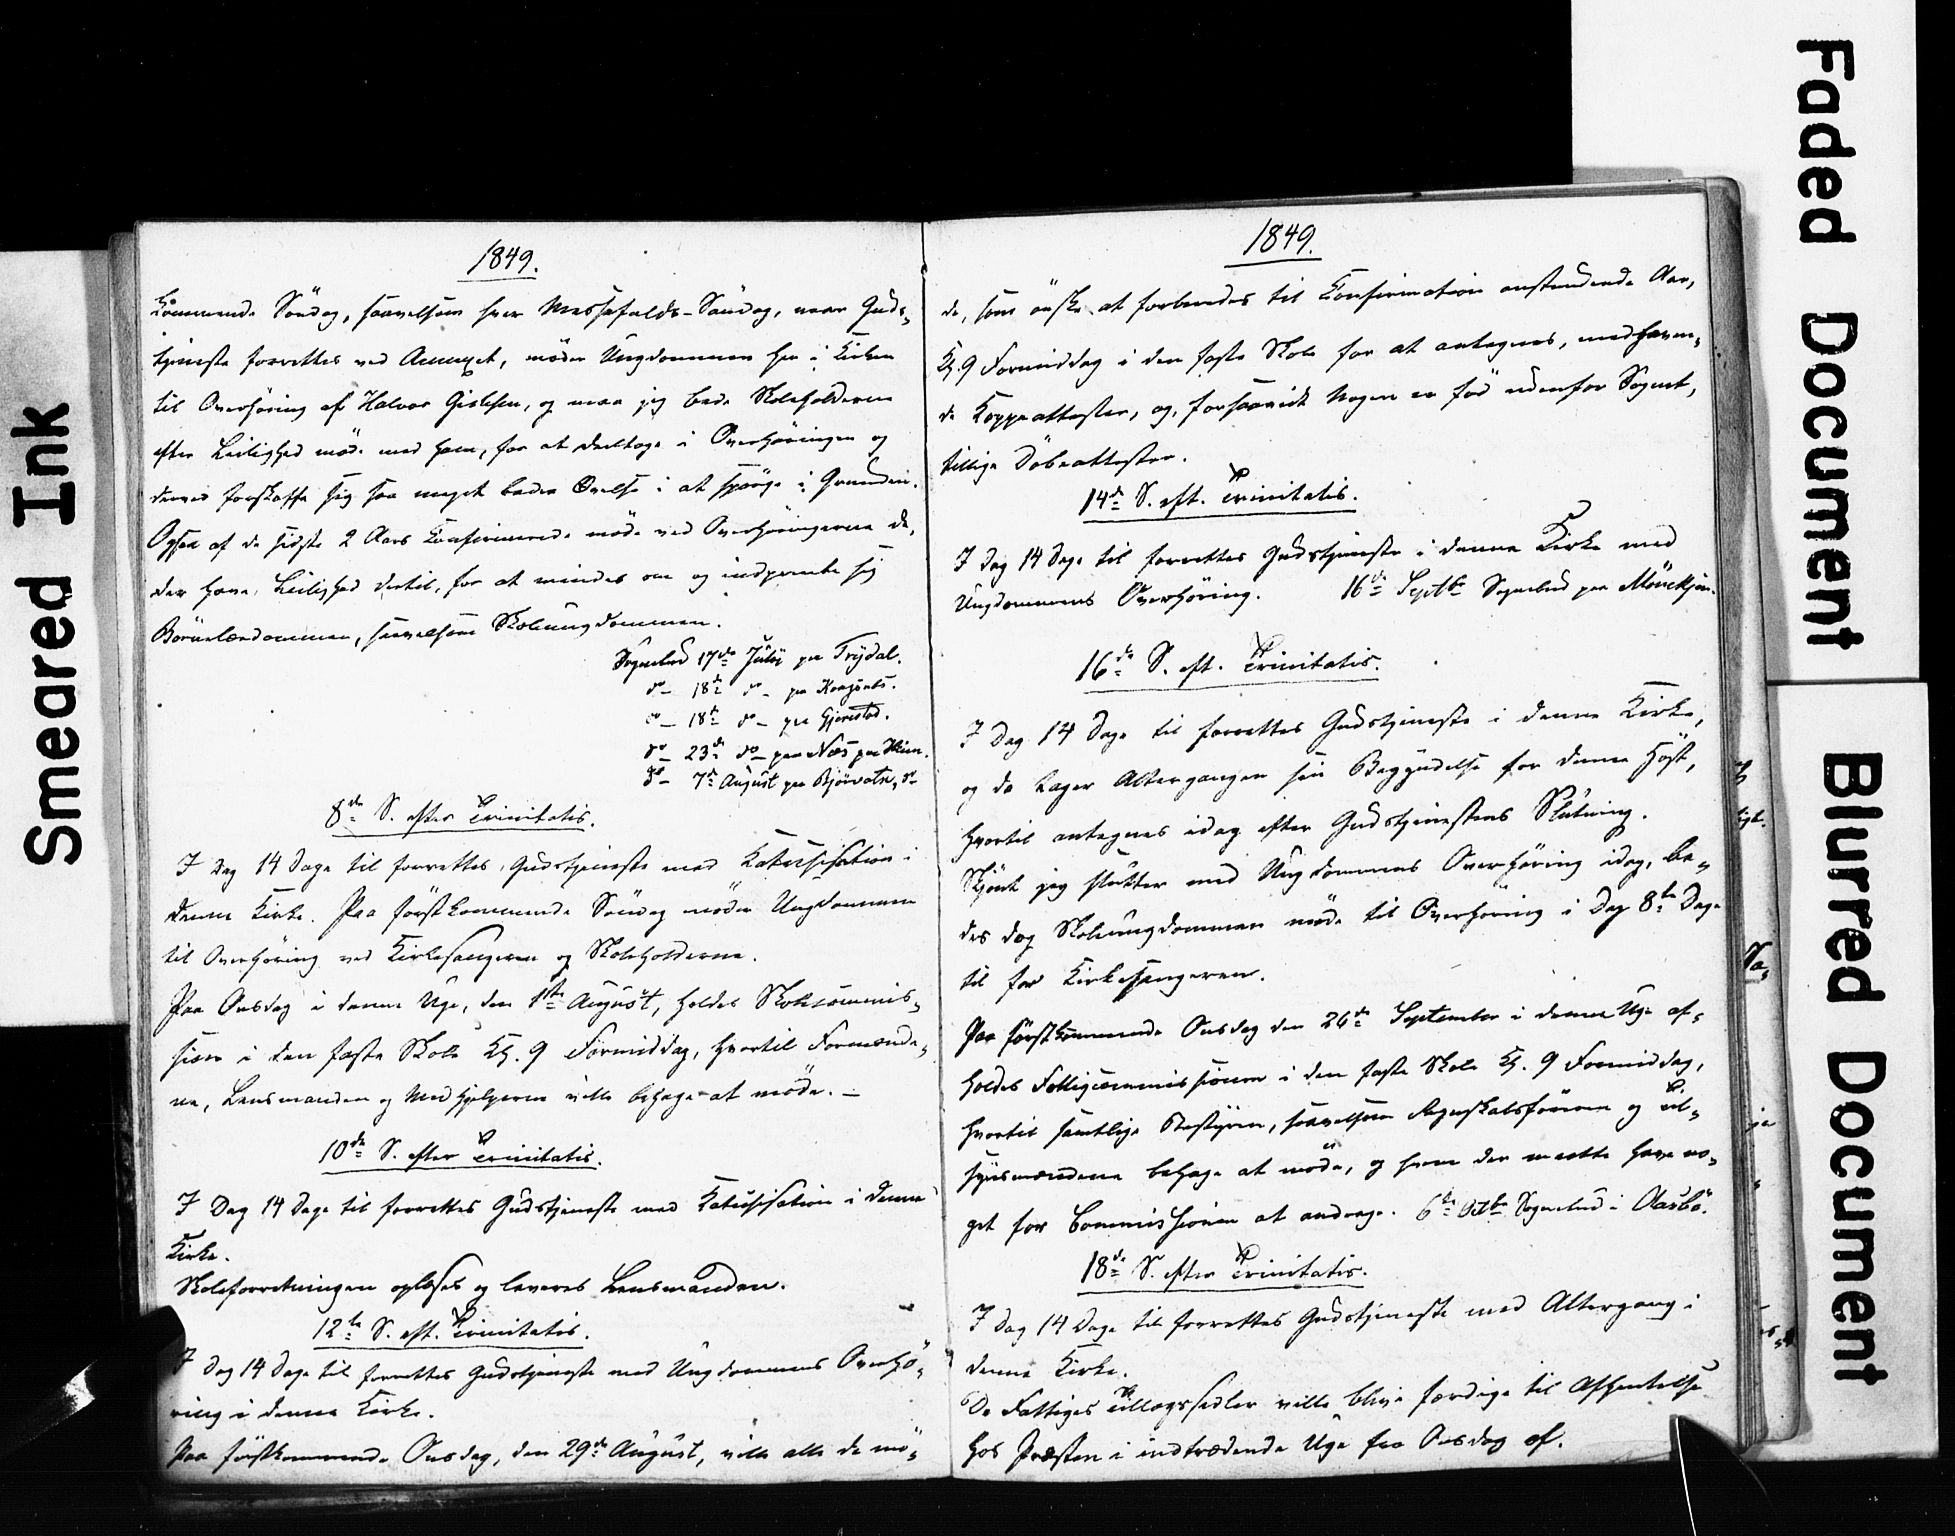 1849.
kommende Söndag, saavelsom hver Messefalds-Söndag, naar Guds-
tjeneste forrettes ved Annexet, möder Ungdommen her i Kirken
til Overhöring af Halvor Gislesen, og maa jeg bede Skoleholderne
efter Leilighed möde med ham, for at deeltage i Overhöringen og
derved forskaffe sig saa meget bedre Övelse i at spörge i Grunden.
Ogsaa af de sidste 2 Aars Konfirmerede möde ved Overhöringerne de,
der have Leilighed dertil, for at mindes om og indprente sig
Börnelærdommen, saavelsom Skoleungdommen.
Sognebud 17de July paa Trydal.
do- 18de do- paa
do- 18de do- paa Gjerestad.
do- 23de do- paa Næs paa
do- 7de August paa
8de S. efter Trinitatis.
I Dag 14 Dage til forrettes Gudstjeneste med Katechisation i
denne Kirke. Paa förstkommende Söndag möder Ungdommen
til Overhöring ved Kirkesangeren og Skoleholderne.
Paa Onsdag i denne Uge, den 1ste August, holdes Skolecommis-
sion i den faste Skole Kl. 9 Formiddag, hvortil Formænde-
ne, Lensmanden og Medhjelperne ville behage at möde. -
10de S. efter Trinitatis.
I Dag 14 Dage til forrettes Gudstjeneste med Katechisation i denne
Kirke.
Skoleforretningen oplæses og leveres Lensmanden.
12te S. eft. Trinitatis.
I Dag 14 Dage til forrettes Gudstjeneste med Ungdommens Overhö-
ring i denne Kirke.
Paa förstkommende Onsdag, den 29de August, ville alle de mö-
1849.
de, som önske at forberedes til Konfirmation anstundende Aar,
Kl. 9 Formiddag i den faste Skole for at antegnes, medhaven-
de Koppeattester, og, forsaavidt Nogen er föd udenfor Sognet,
tillige Döbeattester.
14de S. eft. Trinitatis.
I Dag 14 Dage til forrettes Gudstjeneste i denne Kirke med
Ungdommens Overhöring. 16de Septbr Sognebud paa
16de S. eft. Trinitatis.
I Dag 14 Dage til forrettes Gudstjeneste i denne Kirke,
og da tager Altergangen sin Begyndelse for denne Höst,
hvortil antegnes idag efter Gudstjenestens Slutning.
Skjönt jeg slutter med Ungdommens Overhöring idag, be-
des dog Skoleungdommen möde til Overhöring i Dag 8te Dage
til for Kirkesangeren.
Paa förstkommende Onsdag den 26de September i denne Uge af-
holdes Fattigcommissionen i den faste Skole Kl. 9 Formiddag,
hvortil samtlige Bestyrere, saavelsom Regnskabsföreren og Til-
synsmændene behage at möde, og hvem der maatte have no-
get for Commissionen at andrage. 6te Octbr Sognebud i Aasbö.
18de S. efter Trinitatis.
I Dag 14 Dage til forrettes Gudstjeneste med Altergang i
denne Kirke.
De Fattiges Tillægssedler ville blive færdige til Afhentelse
hos Præsten i indtrædende Uge fra Onsdag af.
Smeared Ink
Faded Document
Blurred Document